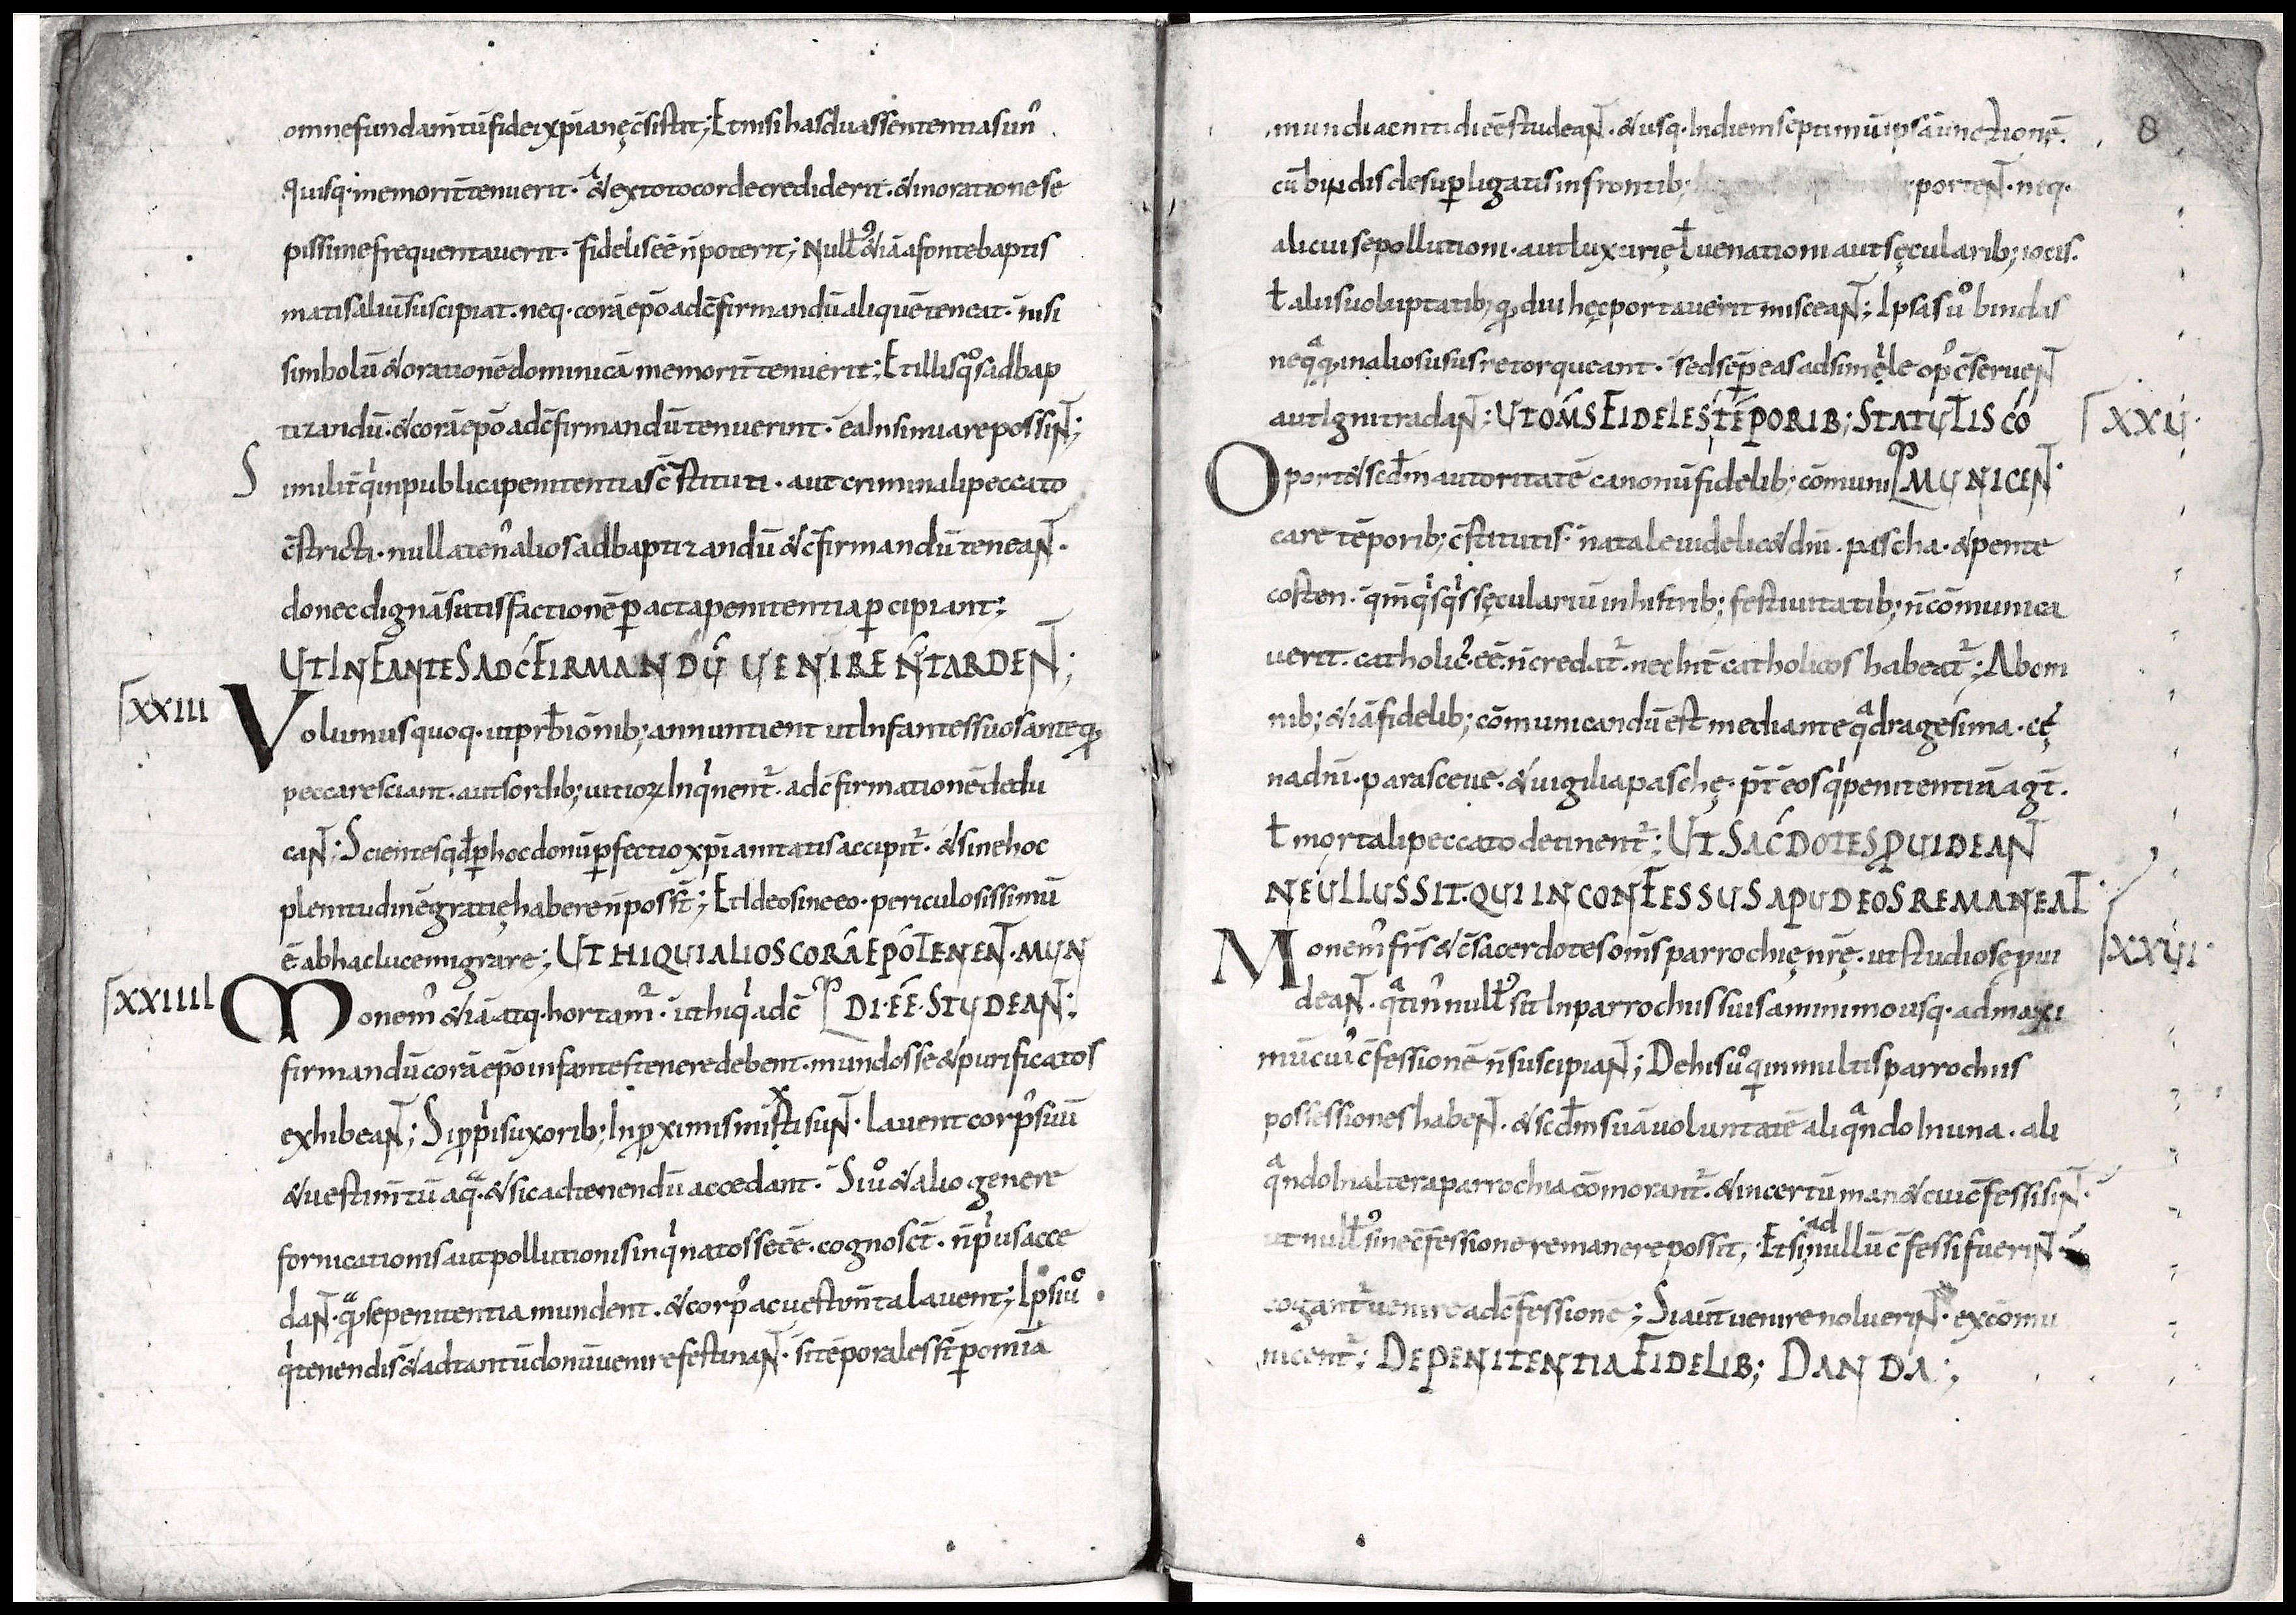 omnefundam̄tūfideixp̄ianęc̄sistit; Etnisihasduassententiasun᾽
quisq·memorit̄tenuerit· &extotocordecrediderit·&inorationese
pissimefrequentauerit· fideliseēn̄poterit; Nullꝰ&iāafontebaptis
matisaliūsuscipiat·neq·corāepōadc̄firmandūaliquēteneat·nisi
simbolū&orationēdominicāmemorit̄tenuerit; Etillisqºsadbap
tizandū·&corāepōadc̄firmandūtenuerint·eaInsinuarepossiNT;
Similit̄qⁱinpublicapenitentiasc̄stituti·autcriminalipeccato
c̄stricti·nullaten᾽aliosadbaptizandū&c̄firmandūteneaNT·
donecdignāsatisfactionēꝑactapenitentiaꝑcipiant;
UTINFANTESADC̄FIRMANDŪ UENIREN̄TARDENT;
⌈XXIII
Volumusquoq·utpr̄biōnib;annuntient utInfantessuosanteqᵃ
peccaresciant·autsordib;uitioꝝInqⁱnent᾽·adc̄firmationēdedu
caNT; Scientesqđꝑhocdonūꝑfectioxp̄ianitatisaccipit᾽·&sinehoc
plenitudinēgratięhaberen̄posst̄; EtIdeosineeo·periculosissimū
ē abhaclucemigrare; UTHIQUIALIOSCORĀEPŌTENENT·MUN
⌈XXIIII
Monem᾽&iāatq·hortam᾽·uthiqⁱadc̄ DI·EĒ·STUDEANT;
firmandūcorāepōinfantesteneredebent·mundosse&purificatos
exhibeaNT; Siꝓpⁱisuxorib;Inꝓximismixtisunt·lauentcorp᾽suū
&uestim̄tūaqᵃ·&sicadtenendūaccedant· Siuº&aliogenere
fornicationisautpollutionisinqⁱnatosseeē·cognosct̄·n̄pⁱusacce
daNT·qᵃsepenitentiamundent·&corp᾽acuestim̄talauent; Ipsiuº
qⁱtenendis&adtantūdonūuenirefestinaNT·sitēporalesst̄ꝑomīa
8
mundiacnitidieēstudeaNT·&usq·Indiemseptimūipsāunctionē·
cūbindisdesuꝑligatisinfrontib; porteNT·neq·
alicuisepollutioni·autluxurięɫuenationiautsęcularib;iocis·
ɫaliisuoluptatib;qᵃdiuhęcportauerit misceaNT; Ipsasuº bindas
neqqᵃinaliosususretorqueant·sedseꝑeasadsimⁱle op᾽c̄serueNT
autIgnitradaNT: UTOMS̄FIDELESTĒPORIB;STATUTISCO
⌈XXU·
Oport&scđmautoritatēcanonūfidelib;cōmuni MUNICENT·
caretēporib;c̄stitutis·nataleuidelic&dn̄i·pascha·&pente
costen·qm̄qⁱsqⁱssęculariūinhistrib;festiuitatib;n̄cōmunica
uerit·catholic᾽eē·n̄credat᾽·necInt̄catholicoshabeat᾽; Abom
nib;&iāfidelib;cōmunicandūestmedianteqᵃdragesima·cę
nadn̄i·parasceue·&uigiliapaschę·pt̄eosqⁱpenitentiāagt̄·
ɫmortalipeccatodetinent᾽; UT.SAC̄DOTESꝒUIDEANT
NEULLUSSIT·QUIINCONFESSUSAPUDEOSREMANEAT·
⌈XXUI·
Monem᾽fr̄s&c̄sacerdotesom̄sparrochięnr̄ę·utstudioseꝓui
deaNT·qᵃtin᾽nullꝰsitInparrochiissuisaminimousq·admaxi
mū·cuiºc̄fessionēn̄suscipiaNT; Dehisuºqⁱinmultisparrochiis
possessioneshabeNT·&scđmsuāuoluntatēaliqᵃndoInuna·ali
qᵃndoInalteraparrochiacōmorant᾽·&incertūman&cuic̄fessisiNT·
utnullꝰsinec̄fessioneremanerepossit; Etsiadnullūc̄fessifueriNT·
cogant᾽uenireadc̄fessionē; SiaūtuenirenolueriNT·excōmu
nicent᾽; DEPENITENTIAFIDELIB; DANDA;